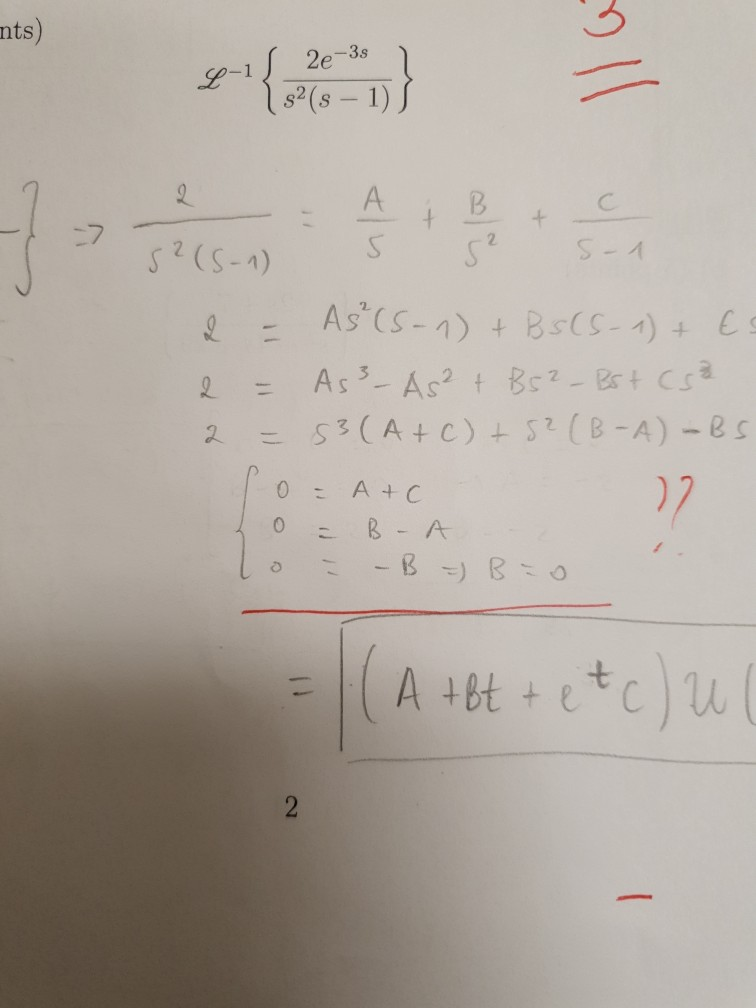 nts)
3
ℒ⁻¹ { 2e⁻³ˢ / s²(s − 1) }
} => 2 / S²(S-1) = A/S + B/S² + C/S-1
2 = AS²(S-1) + BS(S-1) + CS
2 = AS³ - AS² + BS² - BS + CS³
2 = S³(A+C) + S²(B-A) - BS
0 = A+C
0 = B - A
??
0 = -B => B = 0
= (A + Bt + eᵗC) U(
2